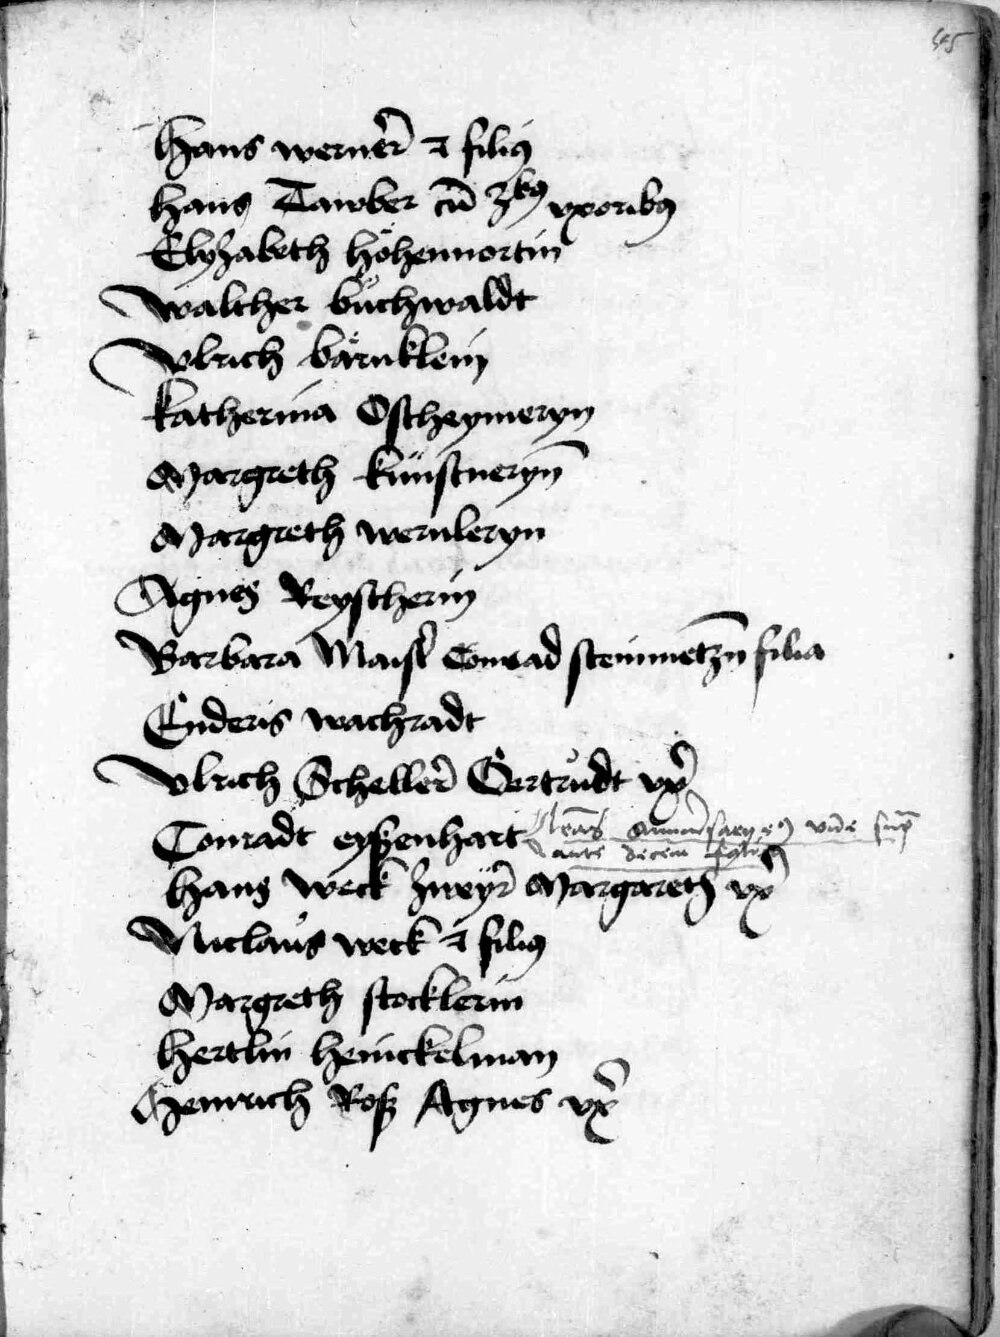 45
Hans werner ⁊ filiꝯ
Hans Tawber cū 3bꝯ vxoribꝯ
Elyzabeth höhenmortin
Walther bůchwaldt
Vlrich bärnklein
Katherina Ostheymeryn
Margreth künstneryn̄
Margreth wernleryn
Agnes Reyscherin
Barbara Maist̉ Conrad steinmetzn̄ filia
Enderis wachradt
Vlrich Scheller̉ Gertrůdt vx̉
Conradt eyszenhart
ante decem folia
Hans Weck Margareth vx̉
Niclaus weck ⁊ filiꝯ
Margreth stocklerin
Hertlin heinckelman
Heinrich Rosz Agnes vx̉